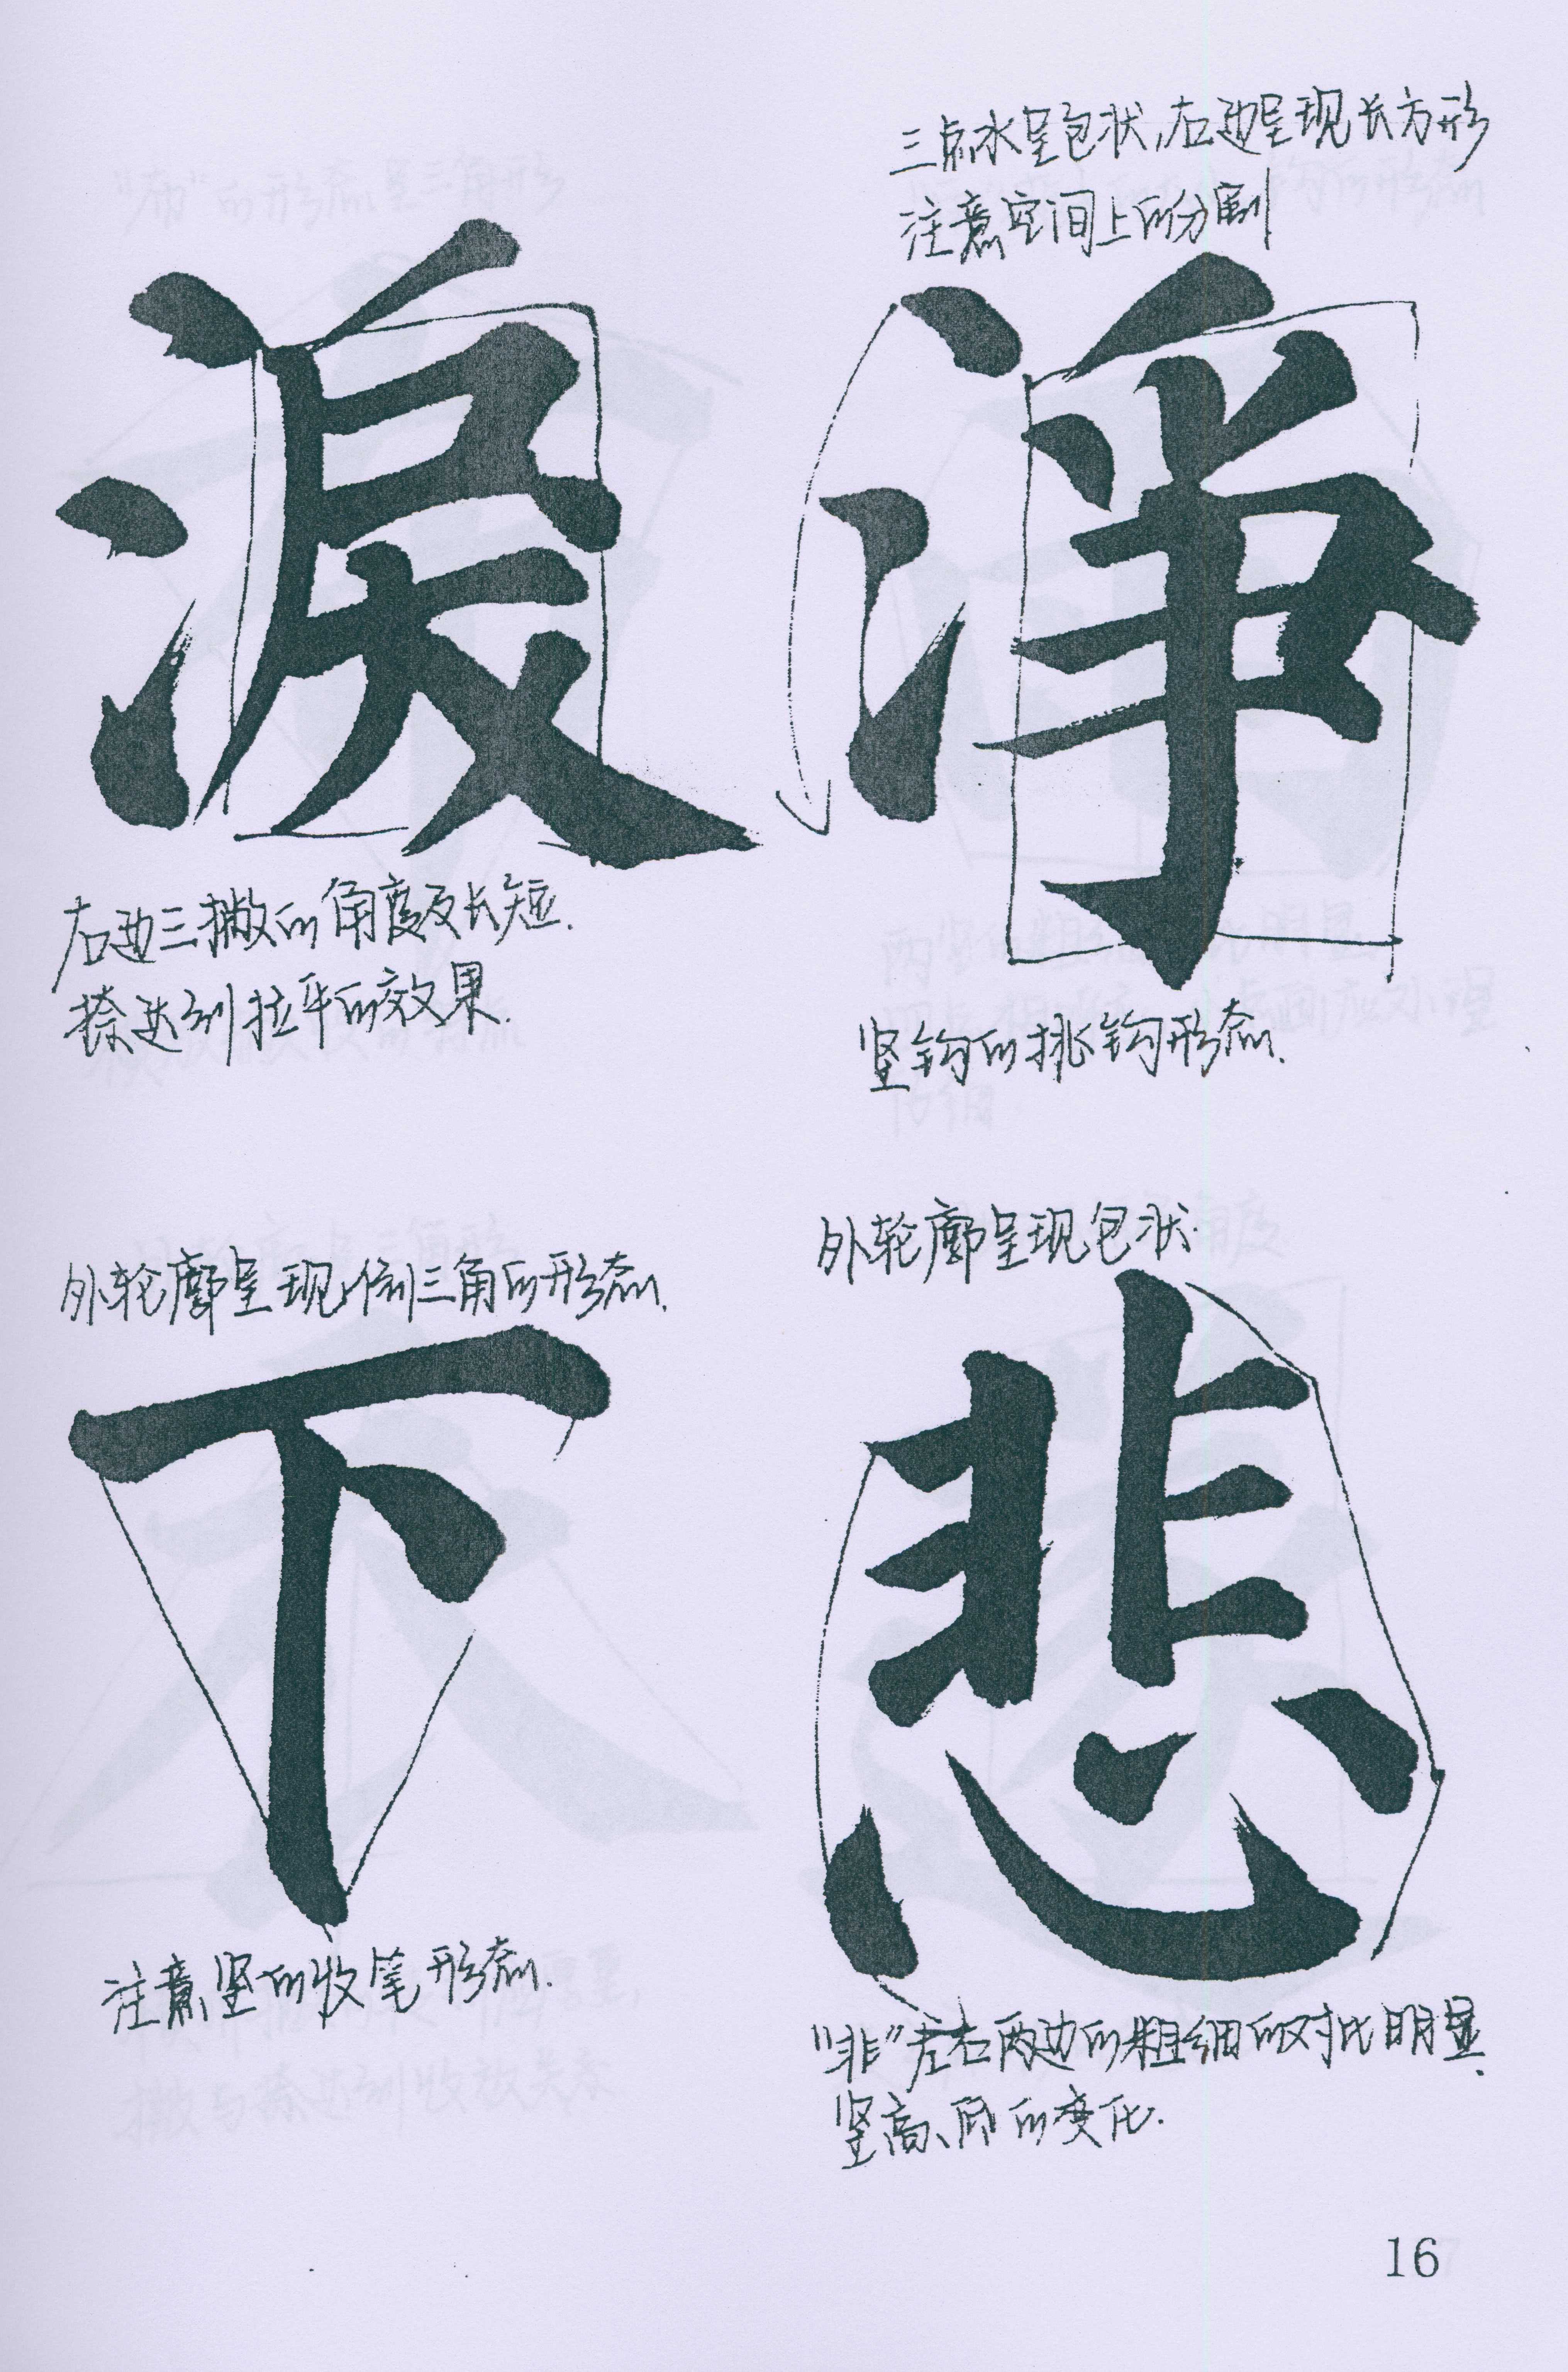 三点水呈包状,右边呈现长方形
注意空间上的分割
淨
竖钩的挑钩形态.
淚
右边三撇的角度及长短.
捺达到拉平的效果.
外轮廓呈现包状.
悲
"非"左右两边的粗细的对比明显.
竖高、低的变化.
外轮廓呈现倒三角的形态.
下
注意竖的收笔形态.
16